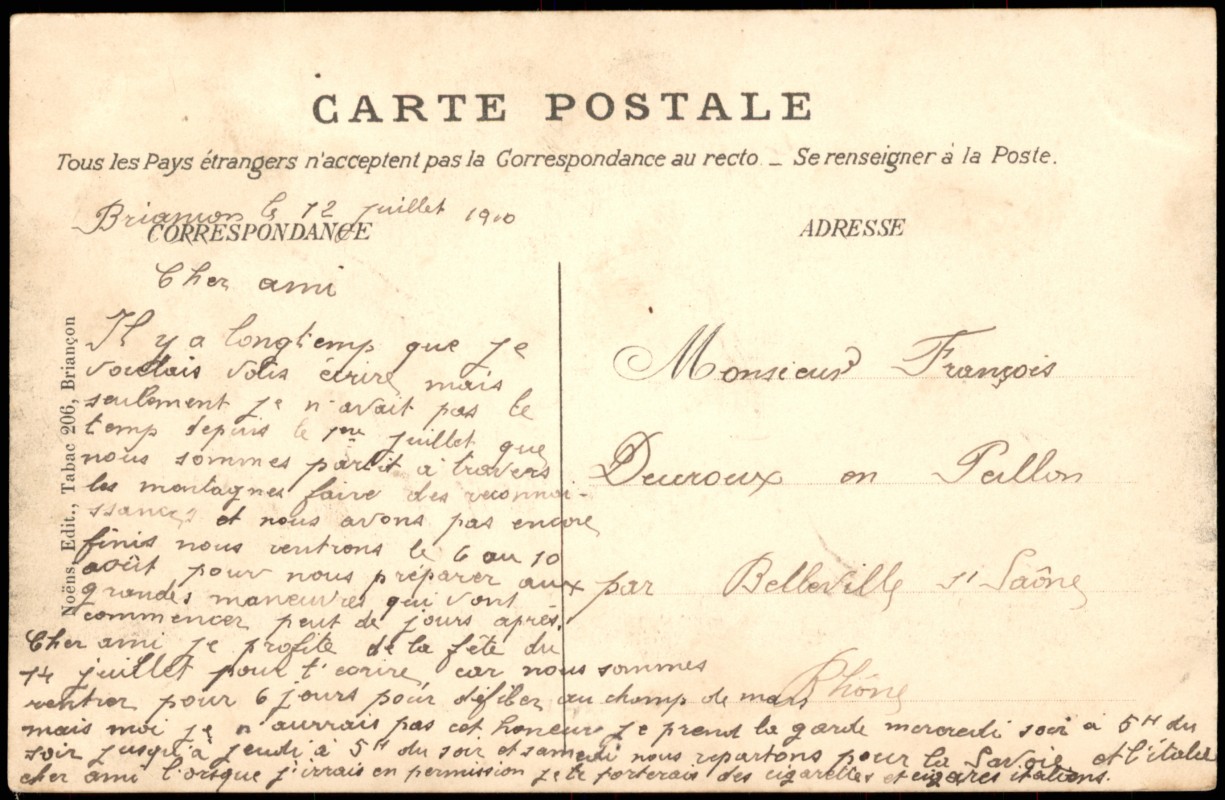 CARTE POSTALE
Tous les Pays étrangers n'acceptent pas la Correspondance au recto _ Se renseigner à la Poste.
Briançon le 12 juillet 1910
CORRESPONDANCE
Cher ami
Il y a longtemp que je
voulais vous écrire mais
seulement je n'avait pas le
temp depuis le 1er juillet que
nous sommes partit à travers
les montagnes faire des reconnai-
ssances et nous avons pas encore
finis nous rentrons le 6 au 10
août pour nous préparer aux
grandes maneuvres qui vont
commencer peut de jours après.
Cher ami je profite de la fête du
14 juillet pour t'ecrire car nous sommes
rentrer pour 6 jours pour défiler au champ de mars
mais moi je n'aurrais pas cet honeur je prend la garde mercredi soir à 5H du
soir jusqu'à jeudi à 5H du soir et samedi nous repartons pour la Savoie et l'italie
cher ami l'orsque j'irrais en permission je te porterais des cigarettes et cigares italiens.
Noëns, Edit., Tabac 206, Briançon
ADRESSE
Monsieur François
Ducroux en Paillon
par Belleville s/ Saône
Rhône